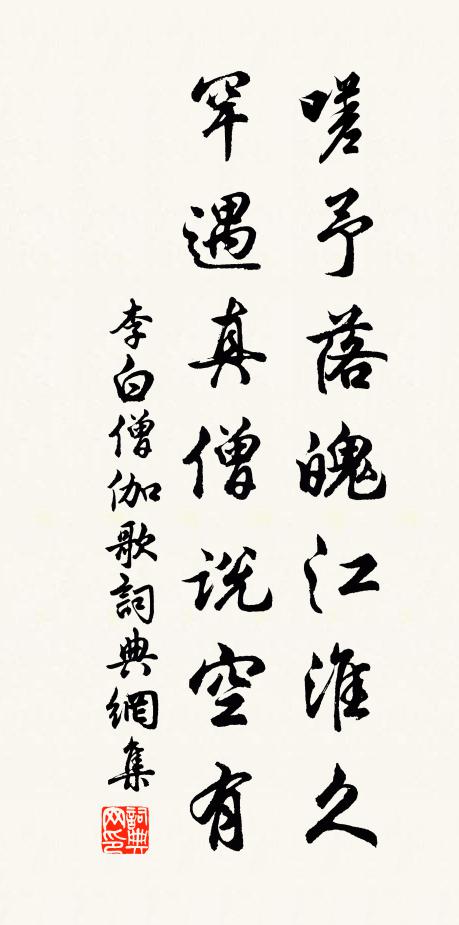 嗟予落魄江淮久
罕遇真僧説空有
李白僧伽歌詞典網集
詞典网印